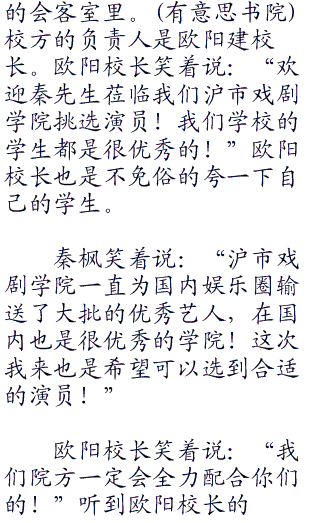 的会客室里。(有意思书院)
校方的负责人是欧阳建校
长。欧阳校长笑着说：“欢
迎秦先生莅临我们沪市戏剧
学院挑选演员！我们学校的
学生都是很优秀的！”欧阳
校长也是不免俗的夸一下自
己的学生。
秦枫笑着说：“沪市戏
剧学院一直为国内娱乐圈输
送了大批的优秀艺人，在国
内也是很优秀的学院！这次
我来也是希望可以选到合适
的演员！”
欧阳校长笑着说：“我
们院方一定会全力配合你们
的！”听到欧阳校长的